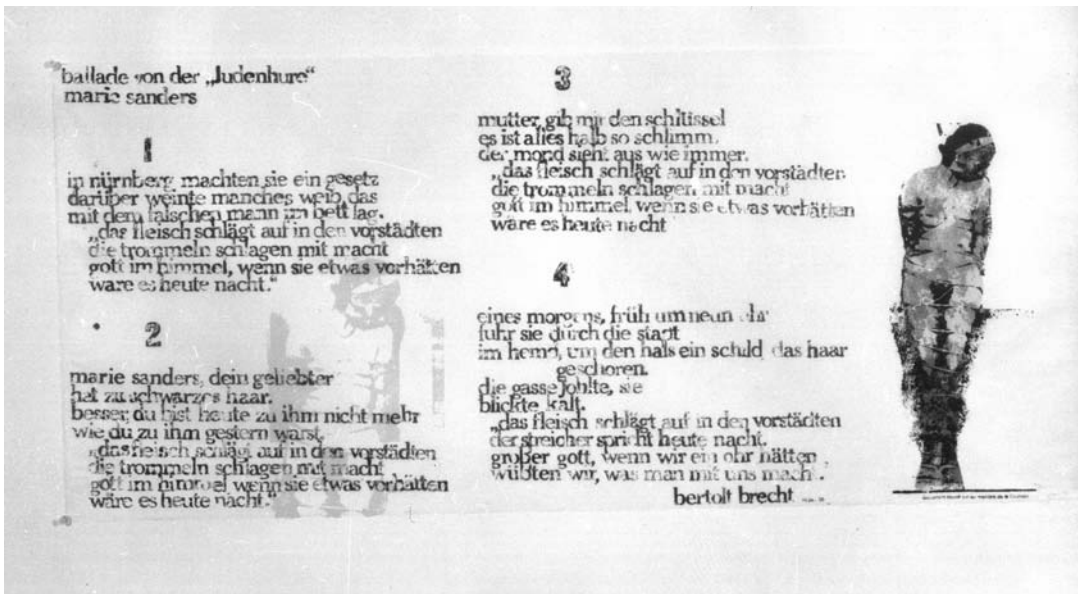 ballade von der „Judenhure“
marie sanders
1
in nürnberg machten sie ein gesetz
darüber weinte manches weib, das
mit dem falschen mann im bett lag.
„das fleisch schlägt auf in den vorstädten
die trommeln schlagen mit macht
gott im himmel, wenn sie etwas vorhätten
wäre es heute nacht.“
2
marie sanders, dein geliebter
hat zu schwarzes haar.
besser, du bist heute zu ihm nicht mehr
wie du zu ihm gestern warst.
„das fleisch schlägt auf in den vorstädten
die trommeln schlagen mit macht
gott im himmel wenn sie etwas vorhätten
wäre es heute nacht.“
3
mutter, gib mir den schlüssel
es ist alles halb so schlimm.
der mond sieht aus wie immer.
„das fleisch schlägt auf in den vorstädten
die trommeln schlagen mit macht
gott im himmel, wenn sie etwas vorhätten
wäre es heute nacht
4
eines morgens, früh um neun uhr
fuhr sie durch die stadt
im hemd, um den hals ein schild das haar
geschoren.
die gasse johlte, sie
blickte kalt.
„das fleisch schlägt auf in den vorstädten
der streicher spricht heute nacht.
großer gott, wenn wir ein ohr hätten
wüßten wir, was man mit uns macht.
bertolt brecht